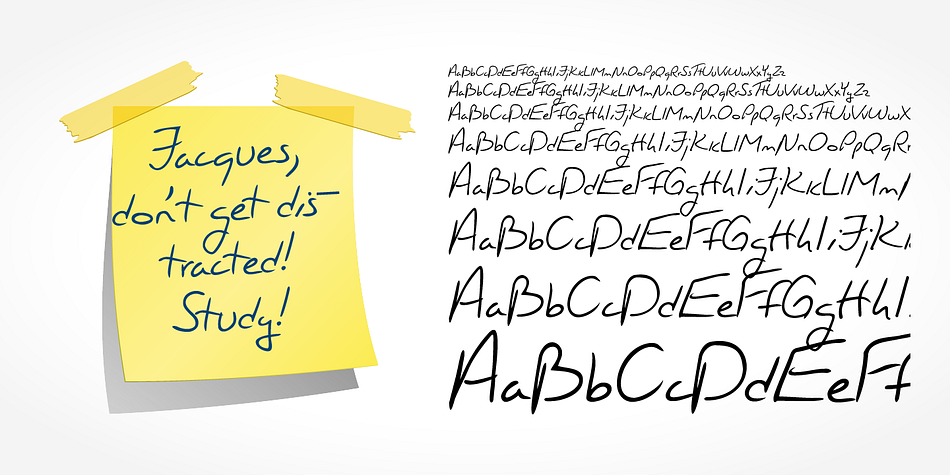 Jacques,
don't get dis-
tracted!
Study!
AaBbCcDdEeFfGgHhIiJjKkLlMmNnOoPpQqRrSsTtUuVvWwXxYyZz
AaBbCcDdEeFfGgHhIiJjKkLlMmNnOoPpQqRrSsTtUuVvWwXxYyZz
AaBbCcDdEeFfGgHhIiJjKkLlMmNnOoPpQqRrSsTtUuVvWwX
AaBbCcDdEeFfGgHhIiJjKkLlMmNnOoPpQqRr
AaBbCcDdEeFfGgHhIiJjKkLlMm
AaBbCcDdEeFfGgHhIiJjK
AaBbCcDdEeFfGgHhI
AaBbCcDdEeFf